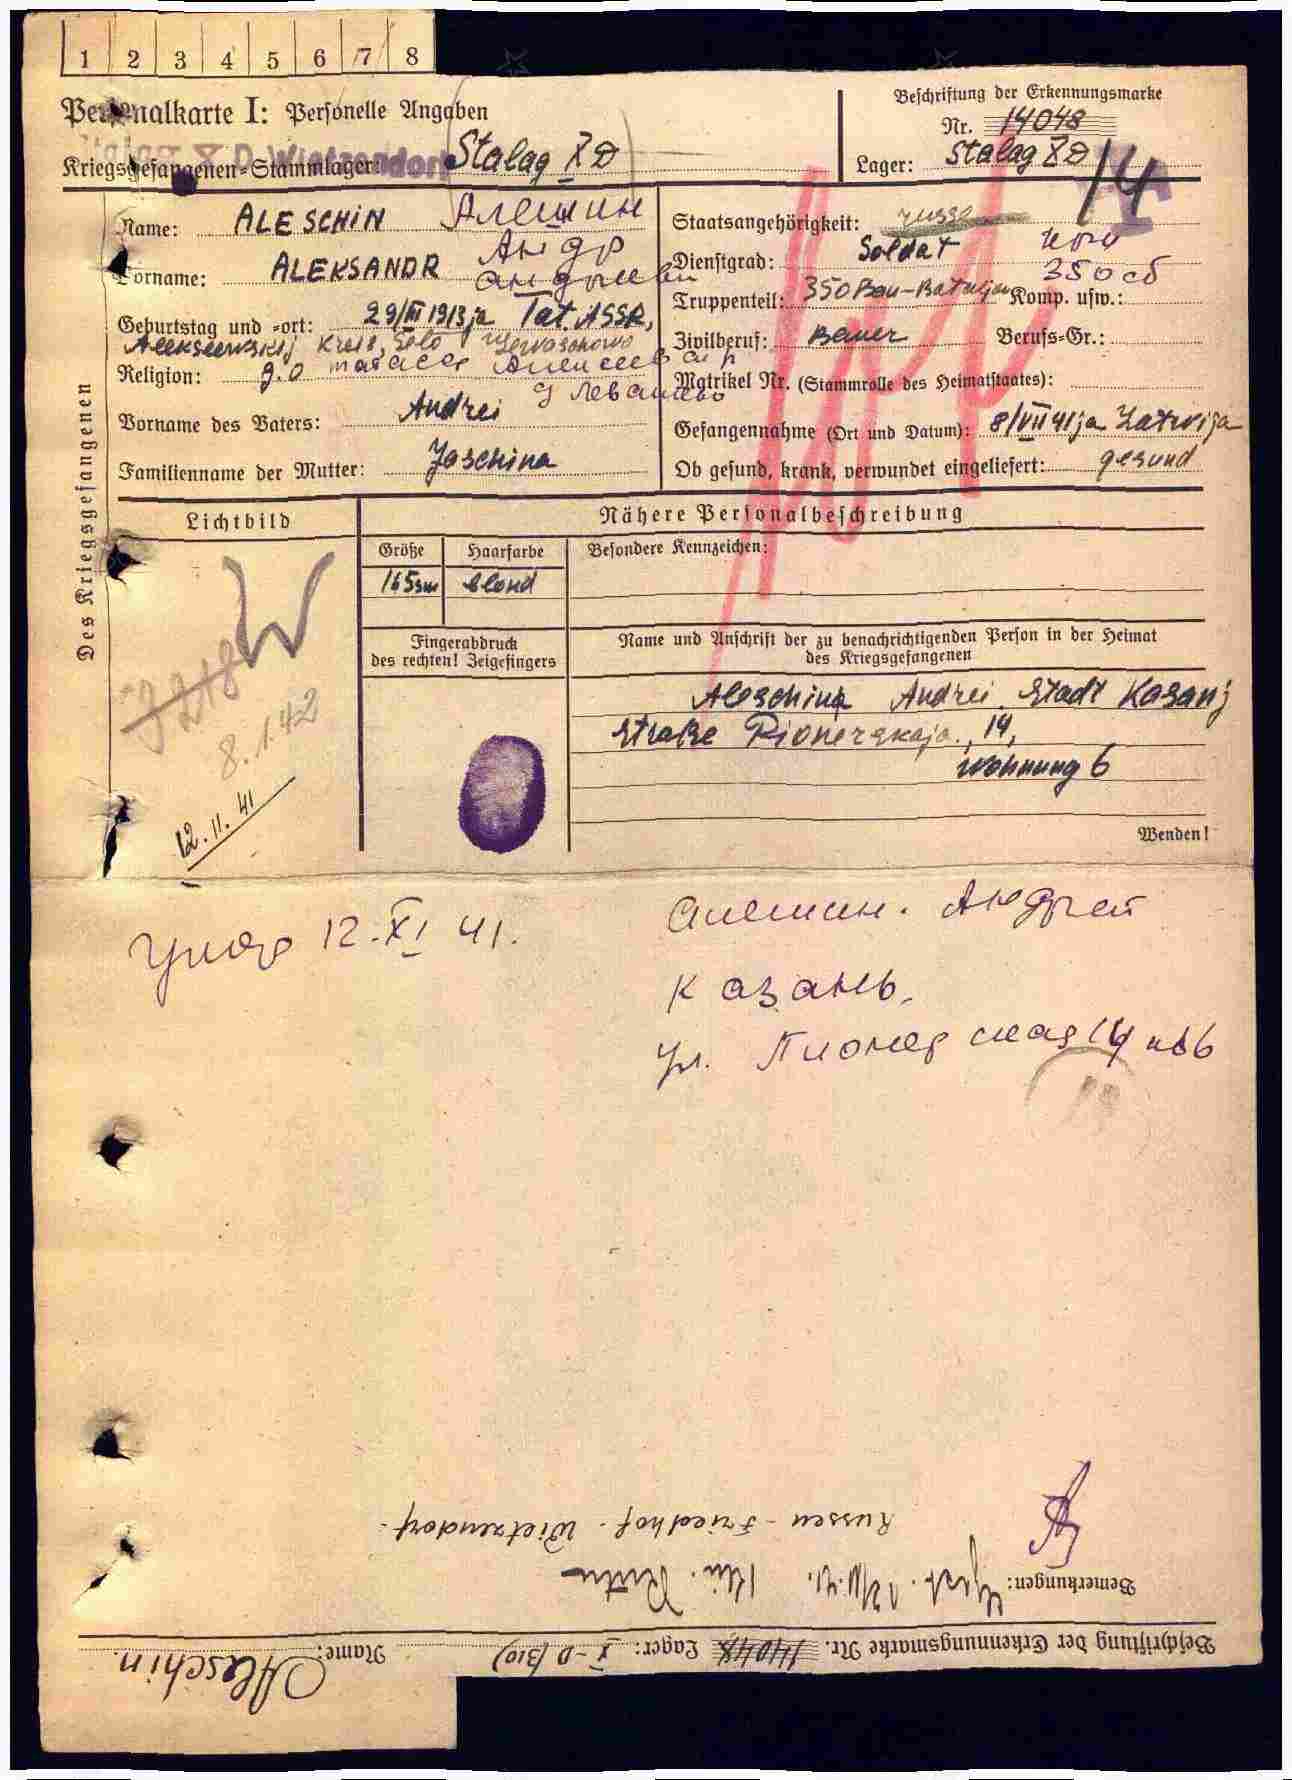 1 2 3 4 5 6 7 8
Personalkarte I: Personelle Angaben
Beschriftung der Erkennungsmarke
Nr. 14048
D Wietzendorf
Kriegsgefangenen-Stammlager: Stalag X D
Lager: Stalag X D
14
Des Kriegsgefangenen
Name: ALESCHIN Алешин
Staatsangehörigkeit: russe
Vorname: ALEKSANDR Андр
Dienstgrad: Soldat
350 сб
Truppenteil: 350 Bau-Bataljon Komp. usw.:
Geburtstag und -ort: 29/III 1913 ja Tat. ASSR,
Alekseewskij Kreis, Selo
Zivilberuf: Bauer Berufs-Gr.:
Religion: g.o
Matrikel Nr. (Stammrolle des Heimatstaates):
д Левашево
Vorname des Vaters: Andrei
Gefangennahme (Ort und Datum): 8/VII 41 ja Latvija
Familienname der Mutter: Jaschina
Ob gesund, krank, verwundet eingeliefert: gesund
Lichtbild
Nähere Personalbeschreibung
Größe Haarfarbe Besondere Kennzeichen:
165sm blond
W
8.1.42
12.11.41
Fingerabdruck
des rechten! Zeigefingers
Name und Anschrift der zu benachrichtigenden Person in der Heimat
des Kriegsgefangenen
Aleschina Andrei Stadt Kasanj
Straße Pionerskaja, 14,
Wohnung 6
Wenden!
Умер 12.XI 41.
Алешин. Андрей
Казань,
ул. Пионерская 14 кв 6
Beschriftung der Erkennungsmarke Nr. 14048 Lager: X-D (310) Name: Aleschin
Bemerkungen: Gest. 12/11.41.
Russen-Friedhof. Wietzendorf.